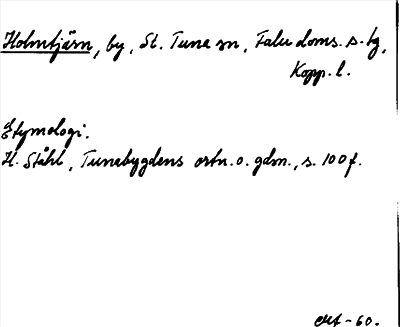 Holmtjärn, by, St. Tuna sn, Falu doms. s. tg,
Kopp. l.
Etymologi.
H. Ståhl, Tunabygdens ortn. o. gdn., s. 100 f.
-60.